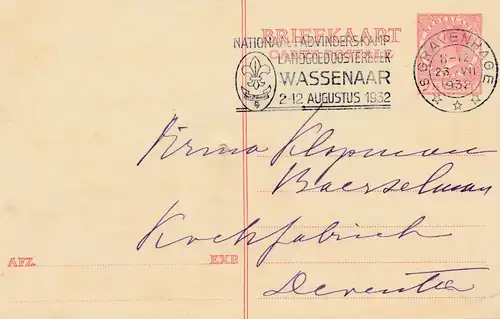 BRIEFKAART
CARTE POSTALE
NATIONAAL PADVINDERSKAMP
LANDGOED OOSTERBEEK
WASSENAAR
2-12 AUGUSTUS 1932
'S GRAVENHAGE
1932
NEDERLAND
Firma Klopman
Baerselman
Kochfabrieh
Deventer
AFZ.
EXP.